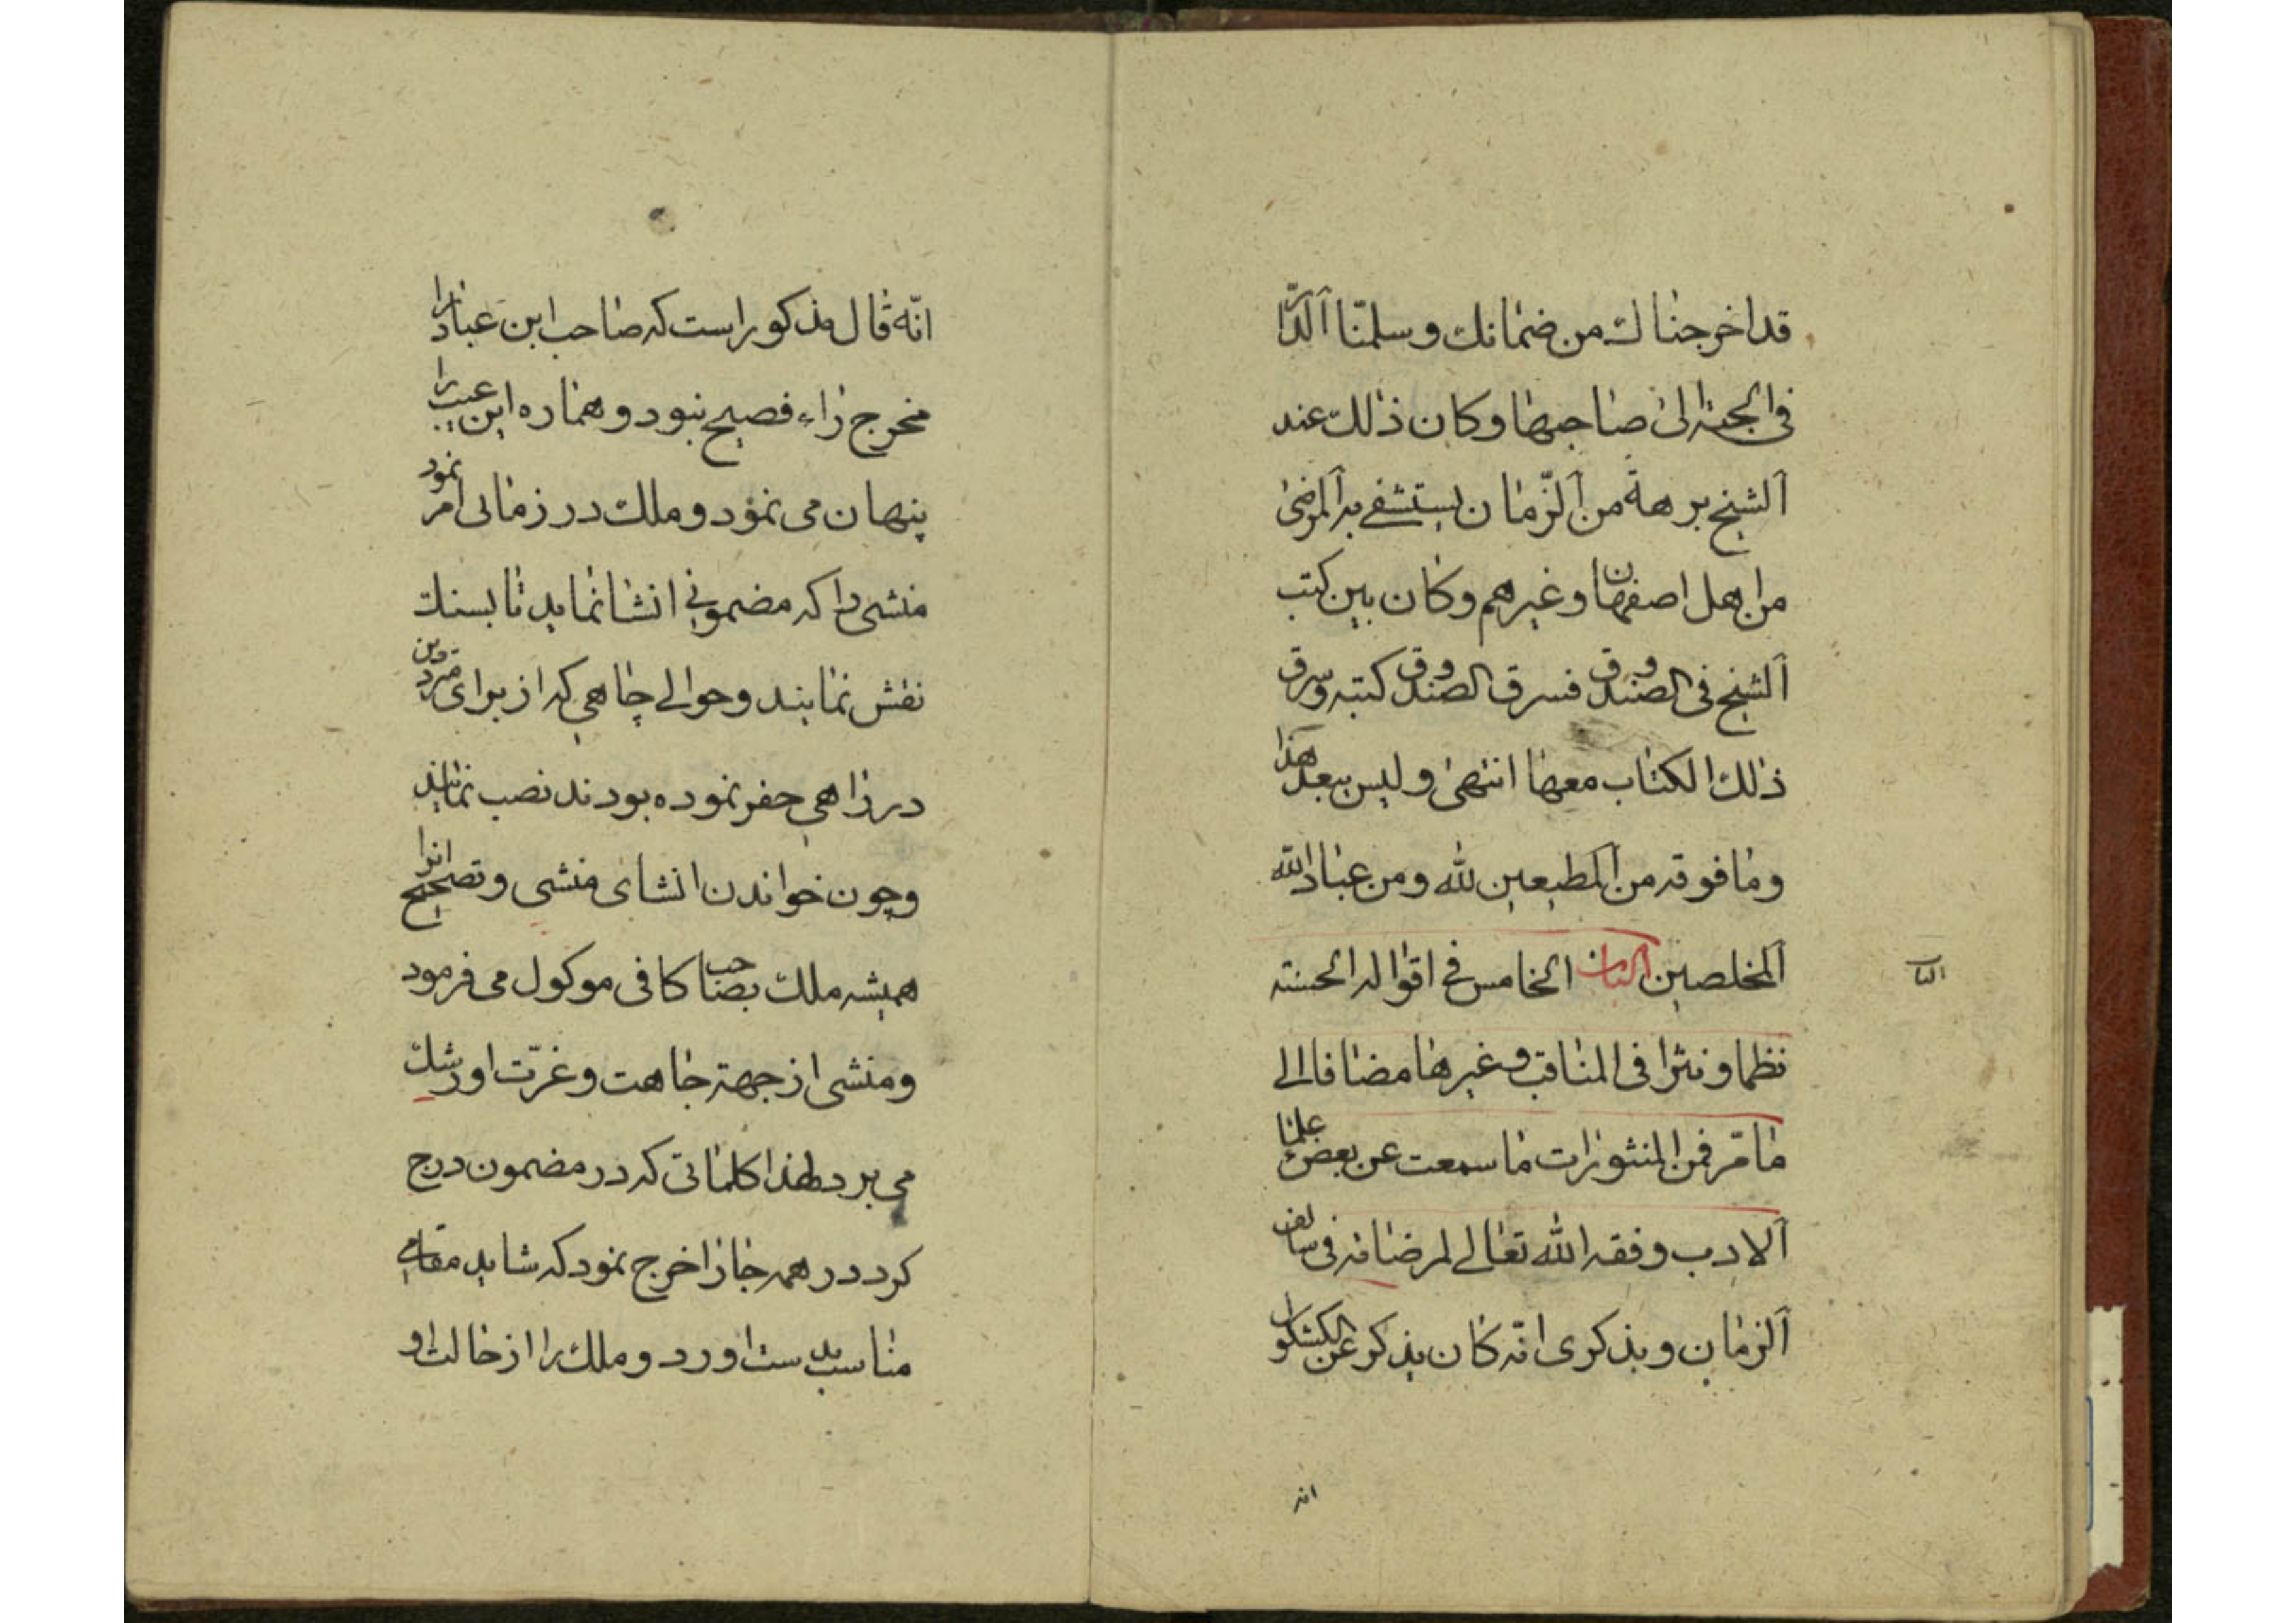 قد اخرجناك من ضمانك وسلمنا الدار
فی الجنة الی صاحبها وكان ذلك عند
الشیخ برهة من الزمان یستشفی به المرضی
من اهل اصفهان وغیرهم وكان بین كتب
الشیخ فی الصندوق فسرق الصندوق كتبه وسرق
ذلك الكتاب معها انتهی ولیس ببعد هذا
وما فوقه من المطیعین لله ومن عباد الله
المخلصین الباب الخامس فی اقواله الحسنة
نظما ونثرا فی المناقب وغیرها مضافا الی
ما مر فمن المنثورات ما سمعت عن بعض علماء
الادب وفقه الله تعالی لمرضاته فی سالف
الزمان ویذكری انه كان یذكر عن الكشكول
انه
الباب
انّه قال مذكور است كه صاحب ابن عباد را
مخرج راء فصیح نبود و هماره این عیب را
پنهان می نمود و ملك در زمانی امر نمود
منشی را كه مضمونی انشا نماید تا بسنك
نقش نمایند و حوالی چاهی كه از برای مترددین
در راهی حفر نموده بودند نصب نمایند
و چون خواندن انشای منشی و تصحیح انرا
همیشه ملك بصاحب كافی موكول می فرمود
و منشی از جهة جاهت و عزّت او رشك
می برد لهذا كلماتی كه در مضمون درج
كرد در همه جا را خرج نمود كه شاید مقامی
مناسب بدست اورد و ملك را از حالت او